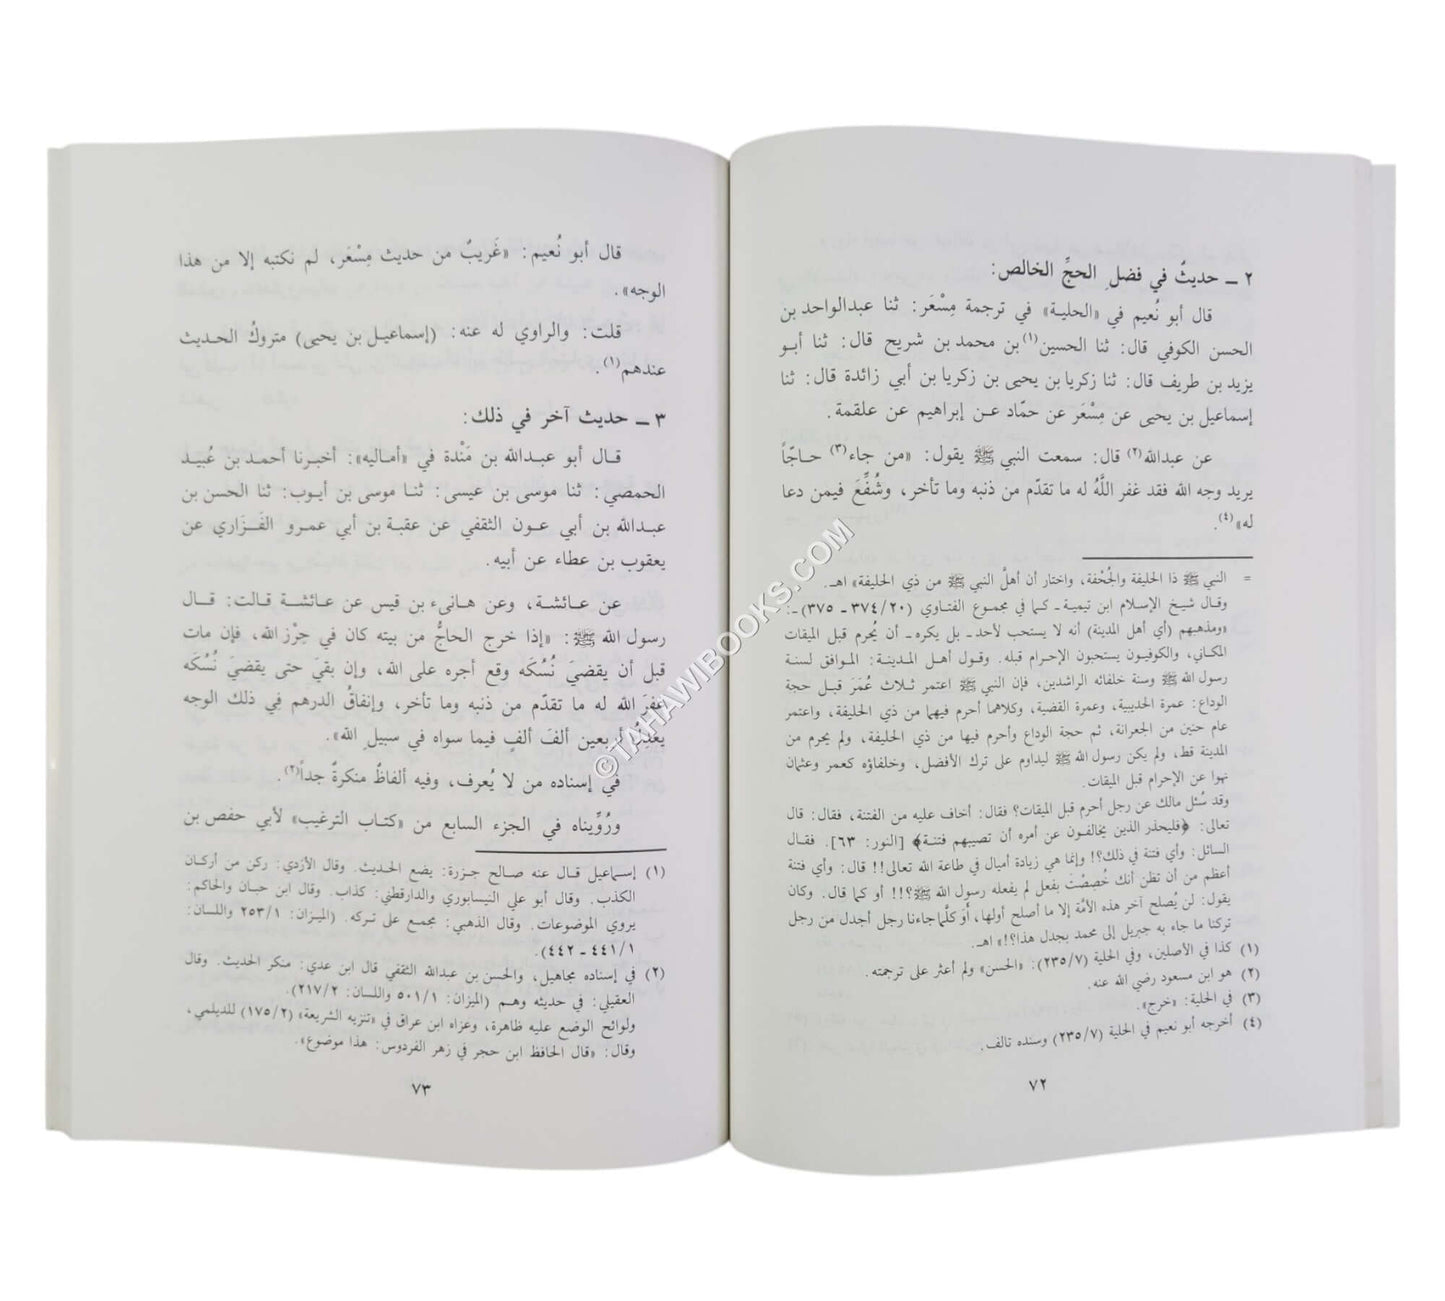 ٢ ـ حديثٌ في فضلِ الحجِّ الخالص:
قال أبو نُعيم في «الحلية» في ترجمة مِسْعَر: ثنا عبدالواحد بن
الحسن الكوفي قال: ثنا الحسين(١) بن محمد بن شريح قال: ثنا أبو
يزيد بن طريف قال: ثنا زكريا بن يحيى بن زكريا بن أبي زائدة قال: ثنا
إسماعيل بن يحيى عن مِسْعَر عن حمّاد عن إبراهيم عن علقمة.
عن عبدالله(٢) قال: سمعت النبي ﷺ يقول: «من جاء(٣) حاجّاً
يريد وجه الله فقد غفر اللَّهُ له ما تقدّم من ذنبه وما تأخر، وشُفِّعَ فيمن دعا
له»(٤).
= النبي ﷺ ذا الحليفة والجُحْفة، واختار أن أهلَّ النبي ﷺ من ذي الحليفة» اهـ.
وقال شيخ الإسلام ابن تيمية ـ كما في مجموع الفتاوي (٢٠/ ٣٧٤ ـ ٣٧٥) ـ:
«ومذهبهم (أي أهل المدينة) أنه لا يستحب لأحد ـ بل يكره ـ أن يُحرم قبل الميقات
المكاني، والكوفيون يستحبون الإحرام قبله. وقول أهل المدينة: الموافق لسنة
رسول الله ﷺ وسنة خلفائه الراشدين، فإن النبي ﷺ اعتمر ثلاث عُمَرَ قبل حجة
الوداع: عمرة الحديبية، وعمرة القضية، وكلاهما أحرم فيهما من ذي الحليفة، واعتمر
عام حنين من الجعرانة، ثم حجة الوداع وأحرم فيها من ذي الحليفة، ولم يحرم من
المدينة قط، ولم يكن رسول الله ﷺ ليداوم على ترك الأفضل، وخلفاؤه كعمر وعثمان
نهوا عن الإحرام قبل الميقات.
وقد سُئل مالك عن رجل أحرم قبل الميقات؟ فقال: أخاف عليه من الفتنة، فقال: قال
تعالى: ﴿فليحذر الذين يخالفون عن أمره أن تصيبهم فتنة﴾ [النور: ٦٣]. فقال
السائل: وأي فتنة في ذلك؟! وإنما هي زيادة أميال في طاعة الله تعالى!! قال: وأي فتنة
أعظم من أن تظن أنك خُصِصْتَ بفعل لم يفعله رسول الله ﷺ؟!! أو كما قال. وكان
يقول: لن يُصلح آخر هذه الأمَّة إلا ما أصلح أولها، أَوَ كلَّما جاءنا رجل أجدل من رجل
تركنا ما جاء به جبريل إلى محمد بجدل هذا؟!» اهـ.
(١) كذا في الأصلين، وفي الحلية (٧/ ٢٣٥): «الحسن» ولم أعثر على ترجمته.
(٢) هو ابن مسعود رضي الله عنه.
(٣) في الحلية: «خرج».
(٤) أخرجه أبو نعيم في الحلية (٧/ ٢٣٥) وسنده تالف.
٧٢
قال أبو نُعيم: «غَريبٌ من حديث مِسْعَر، لم نكتبه إلا من هذا
الوجه».
قلت: والراوي له عنه: (إسماعيل بن يحيى) متروكُ الحديث
عندهم(١).
٣ ـ حديث آخر في ذلك:
قال أبو عبدالله بن مَنْدة في «أماليه»: أخبرنا أحمد بن عُبيد
الحمصي: ثنا موسى بن عيسى: ثنا موسى بن أيوب: ثنا الحسن بن
عبدالله بن أبي عون الثقفي عن عقبة بن أبي عمرو الفَزَاري عن
يعقوب بن عطاء عن أبيه.
عن عائشة، وعن هانىء بن قيس عن عائشة قالت: قال
رسول الله ﷺ: «إذا خرج الحاجُّ من بيته كان في حِرْز الله، فإن مات
قبل أن يقضيَ نُسُكَه وقع أجره على الله، وإن بقيَ حتى يقضيَ نُسُكَه
غفرَ الله له ما تقدّم من ذنبه وما تأخر، وإنفاقُ الدرهم في ذلك الوجه
يعدِلُ أربعين ألفَ ألفٍ فيما سواه في سبيلِ الله».
في إسناده من لا يُعرف، وفيه ألفاظٌ منكرةٌ جداً(٢).
ورُوِّيناه في الجزء السابع من «كتاب الترغيب» لأبي حفص بن
(١) إسماعيل قال عنه صالح جزرة: يضع الحديث. وقال الأزدي: ركن من أركان
الكذب. وقال أبو علي النيسابوري والدارقطني: كذاب. وقال ابن حبان والحاكم:
يروي الموضوعات. وقال الذهبي: مجمع على تركه. (الميزان: ١/ ٢٥٣ واللسان:
١/ ٤٤١ ـ ٤٤٢).
(٢) في إسناده مجاهيل، والحسن بن عبدالله الثقفي قال ابن عدي: منكر الحديث. وقال
العقيلي: في حديثه وهم (الميزان: ١/ ٥٠١ واللسان: ٢/ ٢١٧).
ولوائح الوضع عليه ظاهرة، وعزاه ابن عراق في «تنزيه الشريعة» (٢/ ١٧٥) للديلمي،
وقال: «قال الحافظ ابن حجر في زهر الفردوس: هذا موضوع».
٧٣
©TAHAWIBOOKS.COM